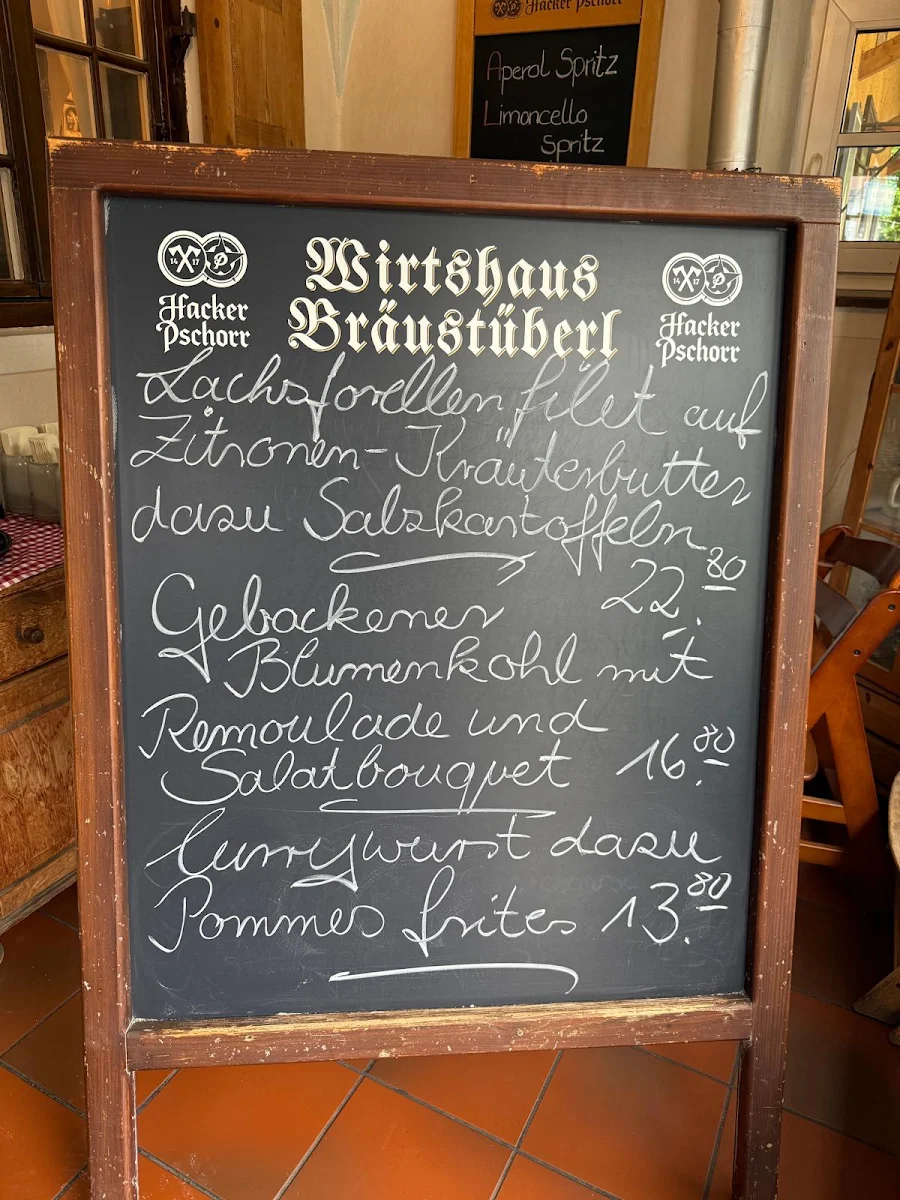 Hacker Pschorr
Aperol Spritz
Limoncello
Spritz
14 17
Hacker
Pschorr
Wirtshaus
Bräustüberl
14 17
Hacker
Pschorr
Lachsforellenfilet auf
Zitronen-Kräuterbutter
dazu Salzkartoffeln
22.80
Gebackener
Blumenkohl mit
Remoulade und
Salatbouquet 16.80
Currywurst dazu
Pommes frites 13.80